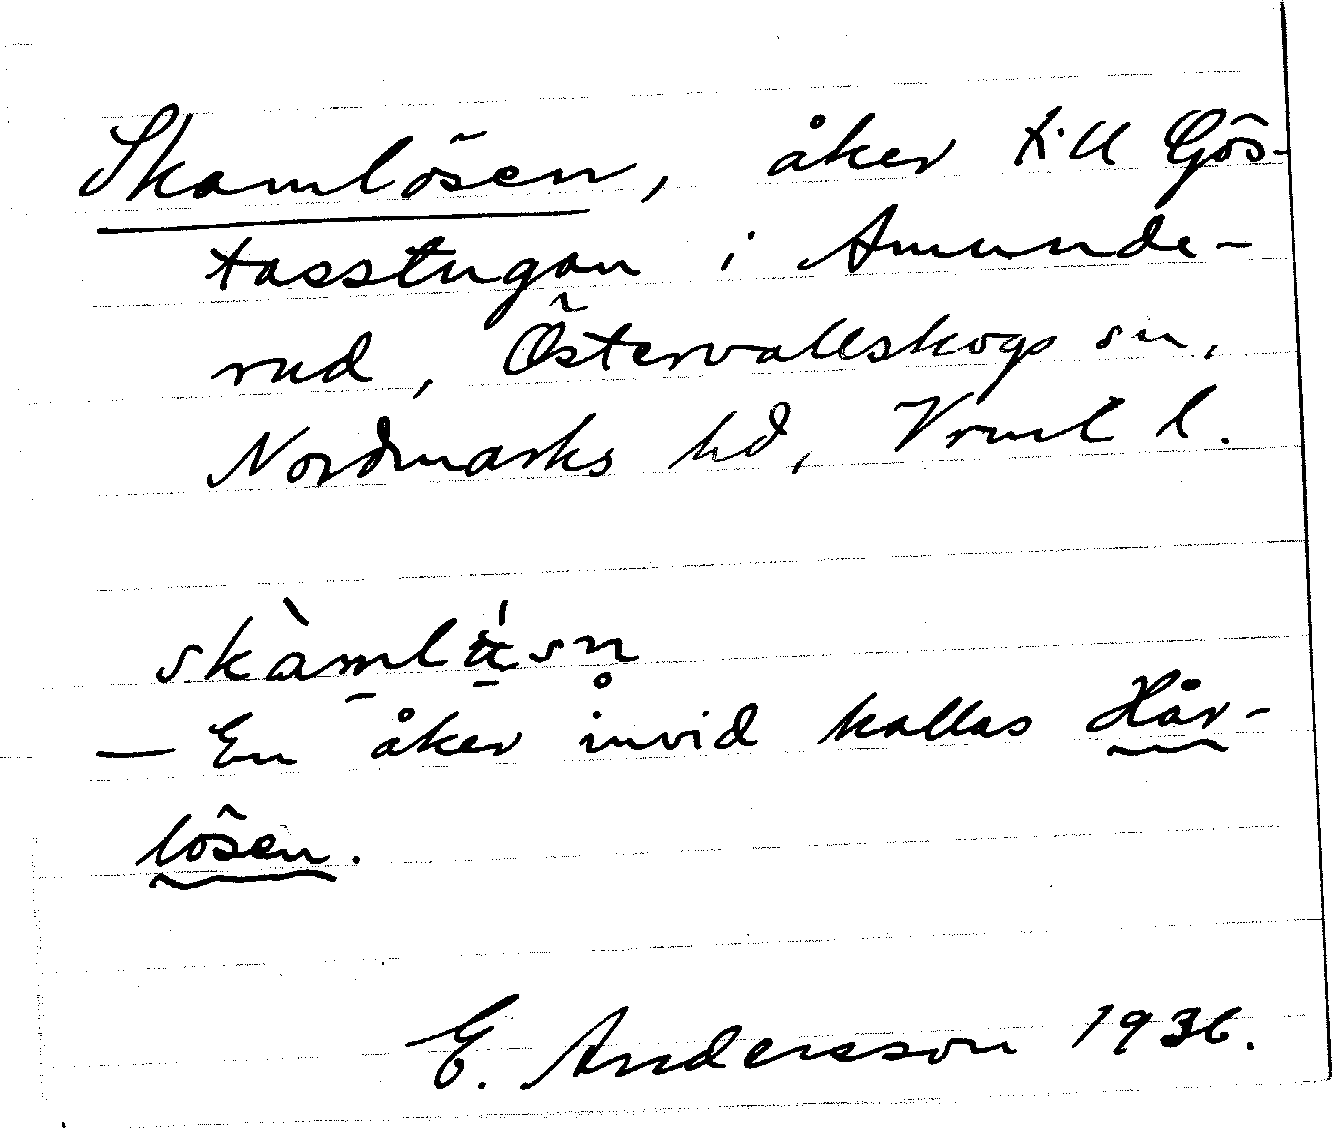 Skamlösen, åker till Gös-
tasstugan i Amunde-
rud, Östervallskogs sn,
Nordmarks hd, Vrml l.
— En åker invid kallas Hår-
lösen.
E. Andersson 1936.